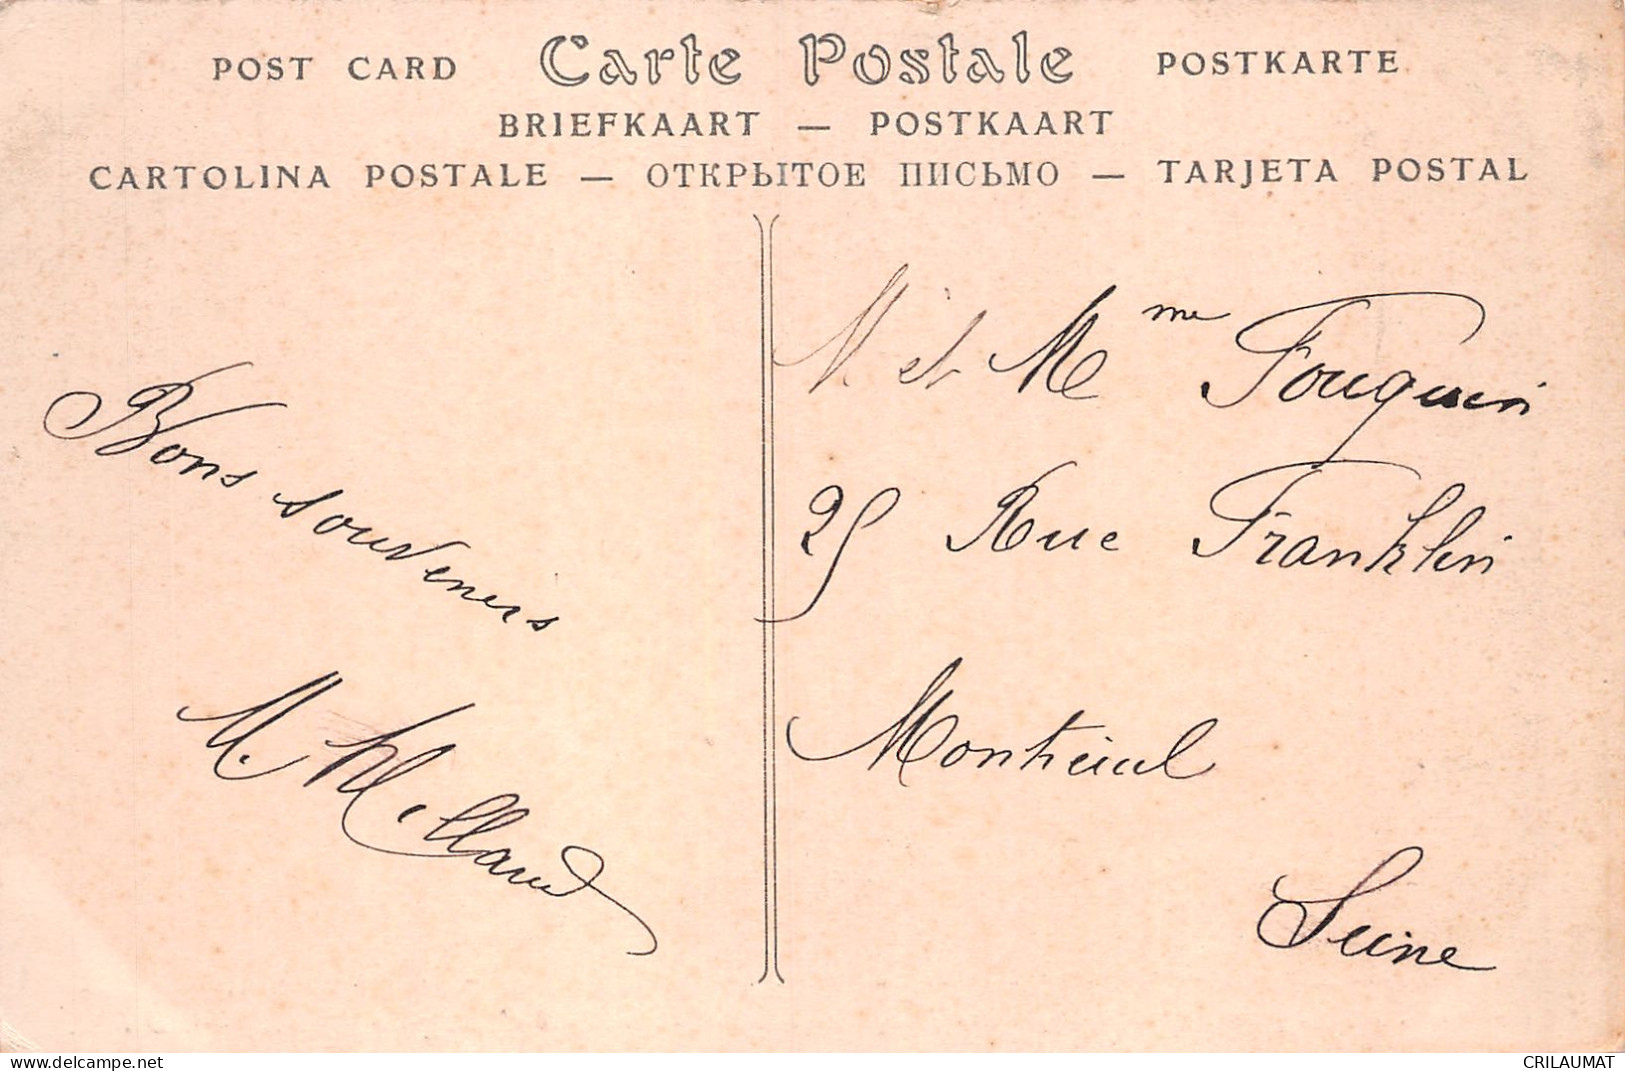 POST CARD Carte Postale POSTKARTE
BRIEFKAART — POSTKAART
CARTOLINA POSTALE — ОТКРЫТОЕ ПИСЬМО — TARJETA POSTAL
Bons souvenirs
M.
M. et Mme Fouquin
25 Rue Franklin
Montreuil
Seine
www.delcampe.net
CRILAUMAT